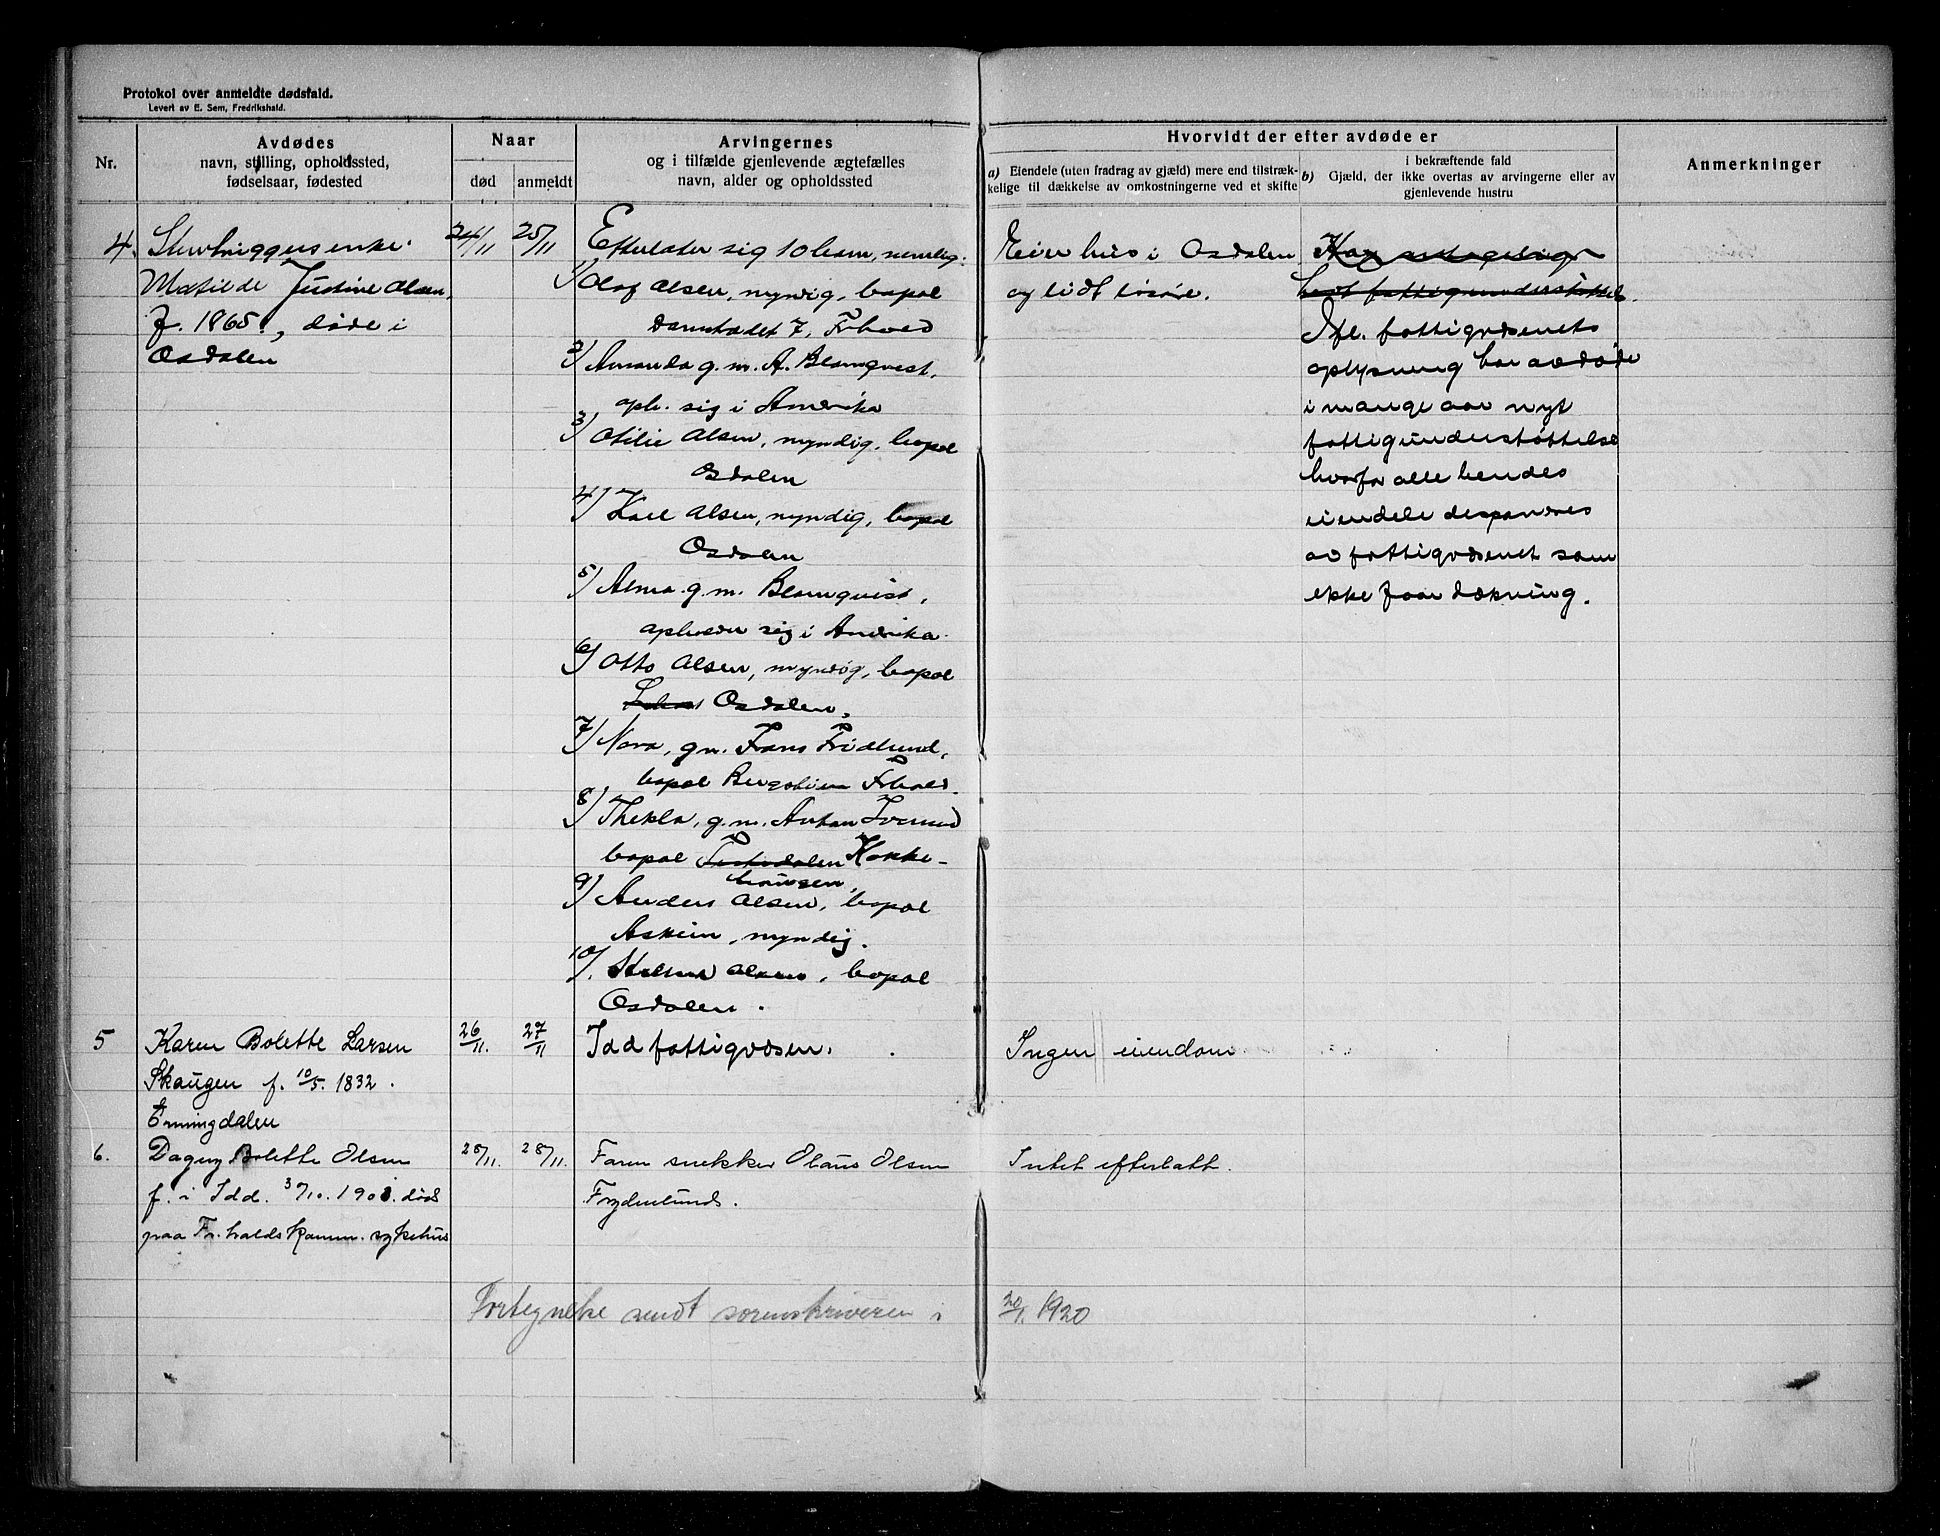 Protokol over anmeldte dødsfald.
Levert av E. Sem, Fredrikshald.
Nr.
Avdødes
navn, stilling, opholdssted,
fødselsaar, fødested
Naar
død
anmeldt
Arvingernes
og i tilfælde gjenlevende ægtefælles
navn, alder og opholdssted
Hvorvidt der efter avdøde er
a) Eiendele (uten fradrag av gjæld) mere end tilstræk-
kelige til dækkelse av omkostningerne ved et skifte
i bekræftende fald
b) Gjæld, der ikke overtas av arvingerne eller av
gjenlevende hustru
Anmerkninger
4.
Stenhuggersenke
Matilde Justine Olsen,
f. 1865, døde i
Osdalen
24/11
25/11
Efterlater sig 10 barn, nemlig:
1) Olaf Olsen, myndig, bopæl
Damstædet 7, Frhald
2) Amanda g. m. A. Blomqvist,
oph. sig i Amerika
3) Otilie Olsen, myndig, bopæl
Osdalen
4) Karl Olsen, myndig, bopæl
Osdalen
5) Alma g. m. Blomqvist,
opholder sig i Amerika
6) Otto Olsen, myndig, bopæl
Osdalen,
7) Nora, g m. Frans Fridlund,
bopæl Bergstien Frhald.
8) Thekla, g. m. Anton Iversen
bopæl Tistedalen Kokke-
haugen,
9) Anders Olsen, bopæl
Askim, myndig.
10/. Olsen, bopæl
Osdalen.
Eier hus i Osdalen
og lidt løsøre.
Har antagelig
havt fattigunderstøttelse.
Ifl. fattigvæsenets
oplysning har avdøde
i mange aar nyt
fattigunderstøttelse
hvorfor alle hendes
eiendele disponeres
av fattigvæsenet som
ikke faar dækning.
5
Karen Bolette Larsen
Skaugen f. 10/5. 1832.
Enningdalen
26/11.
27/11
Idd fattigvæsen.
Ingen eiendom
6.
Dagny Bolette Olsen
f. i Idd. 3/10. 1901. død
paa Fr.halds Komm. sykehus
28/11.
28/11.
Faren snekker Olaus Olsen
Frydenlunds.
Intet efterlatt.
Fortegnelse sendt sorenskriveren i 20/1. 1920